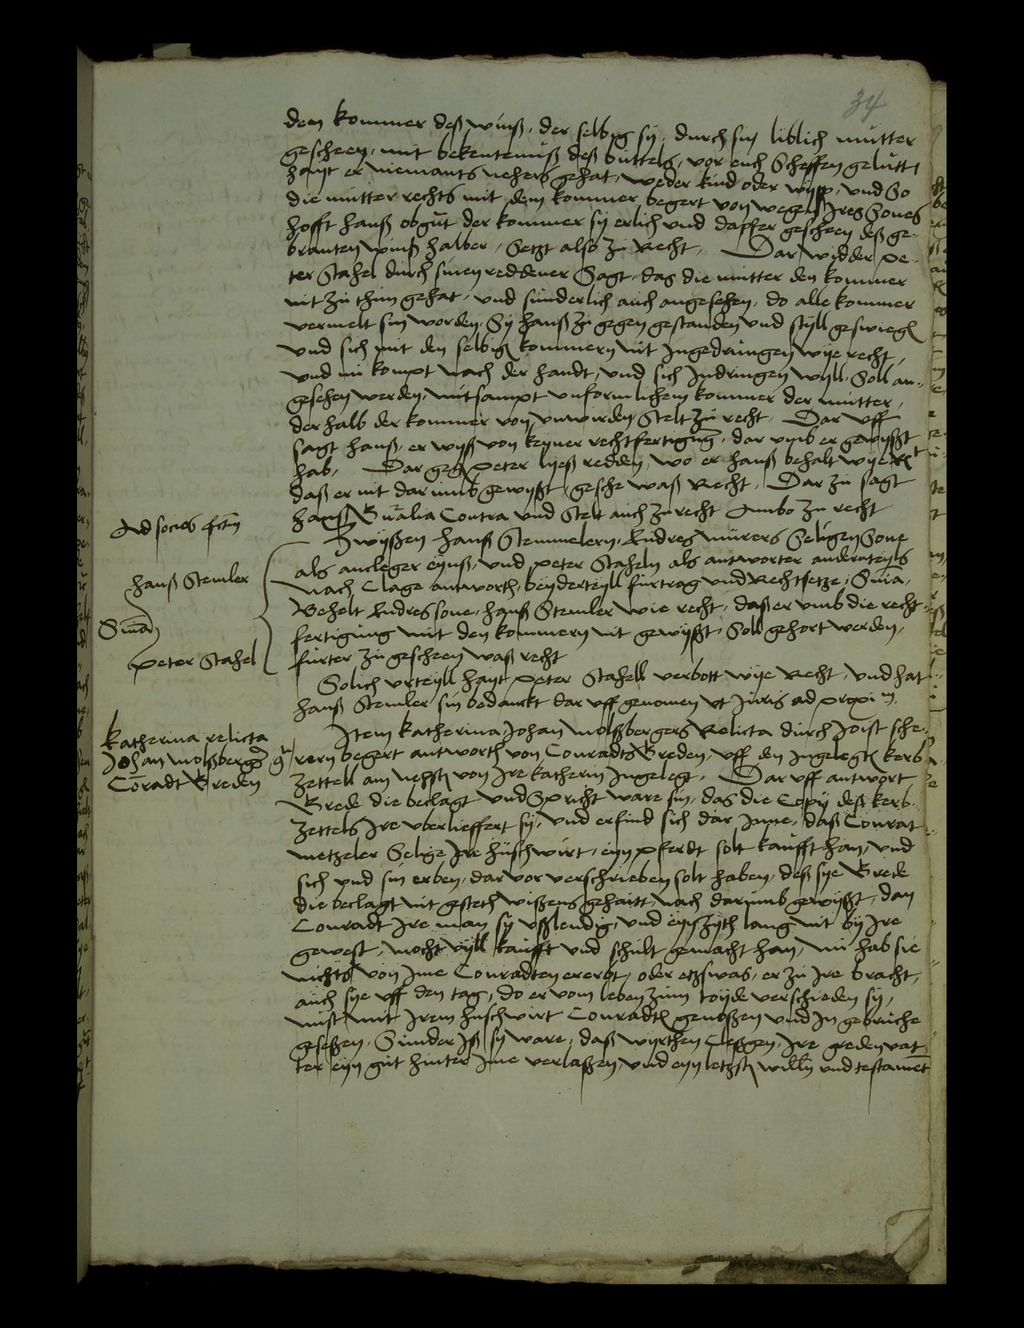 34
dem kommer deß wins, der selbig sy durch sin liblich mutter
gescheen, mit bekenteniß deß buttels, vor euch Scheffen gelutt
hayt er niemants nehers gehat, weder kind oder wyff, und So
die mutter rechts mit dem kommer begert von wegen Ires Sones
hofft hanß obgut der kommer sy erlich und dapfer gescheen deß ge-
branten winß halber, Setzt also zu Recht, Dar widder pe-
ter Stahel durch sinen reddener Sagt, das die mutter den kommer
nit zu thun gehat, und sunderlich auch angesehen, do alle kommer
vermelt sin worden, Sy hanß zu gegen gestanden und styll geswiegen
und sich mit den selbigen kommern nit Ingedrungen wye recht,
und nu kompt nach der handt, und sich Indringen wyll, Soll an-
gesehen werden, mitsampt unformlichem kommer der mutter,
der halb der kommer von unwirden, Stelt zu recht, Dar uff
sagt hanß, er wyß von keyner rechtfertigung, dar umb er gewyßt
hab, Dar gegen peter lyeß redden, wo er hanß behalt wye Recht
daß er nit dar umb gewyßt, geschee waß Recht, Dar zu sagt
hanß Generalia Contra und Stelt auch zu recht Ambo zu recht
Ad socios
Zwyßen hanß Stemmelern, Endres murers Seligen Sone
als ancleger eynß, und peter Staheln als antworter anderteyls
hanß Stemler
nach Clage antworth, beyderteyll furtrag und Rechtsetze, Sententia,
Sententia
Behelt Endres sone, hanß Stemler wie recht, daß er umb die recht-
fertigung mit den kommern nit gewyßt, Soll gehort werden,
peter Stahel
furter zu gescheen waß recht
Solich urteyll hayt peter Stahell verbott wye Recht, und hat
hanß Stemler sin bedanckt dar uff genomen ut Juris ad proximum
katherina relicta
Johan wolffsberger
Conradt Breden
Item katherina Johan wolffsbergers Relicta durch Joist sche-
rern begert antworth von Conradts Breden, uff den Ingelegten kerb-
zettell am nehsten von Ire katherin Ingelegt, Dar uff antwort
Brede die beclagt und Spricht ware sin, das die Copy deß kerb-
zettels Ire uberlieffert sy, und erfind sich dar Inne, daß Conrat
metzeler Selige Ire hußwirt, eyn pferdt solt kaufft han, und
sich und sin erben, dar vor verschrieben solt haben, deß sye Brede
die beclagt nit gesteth wißens gehatt, nach darumb gewyßt, dan
Conradt Ire man sy ußlendig, und eyn zyth lang nit by Ire
gewest, mocht vyll kaufft und schult gemacht han, nu hab sie
nichts von Ime Conradten ererbt, oder etzwas, er zu Ire bracht,
auch sye uff den tag, do er vom leben zum toyde verschieden sy,
nist mit Irem hußwirt Conradten genoßen und In gebruche
geseßen, Sunder Iß sy ware, daß wyrthen Cleßgen, Ire greden vat-
ter eyn gut hinter Ime verlaßen, und eyn letzsten willen und testament